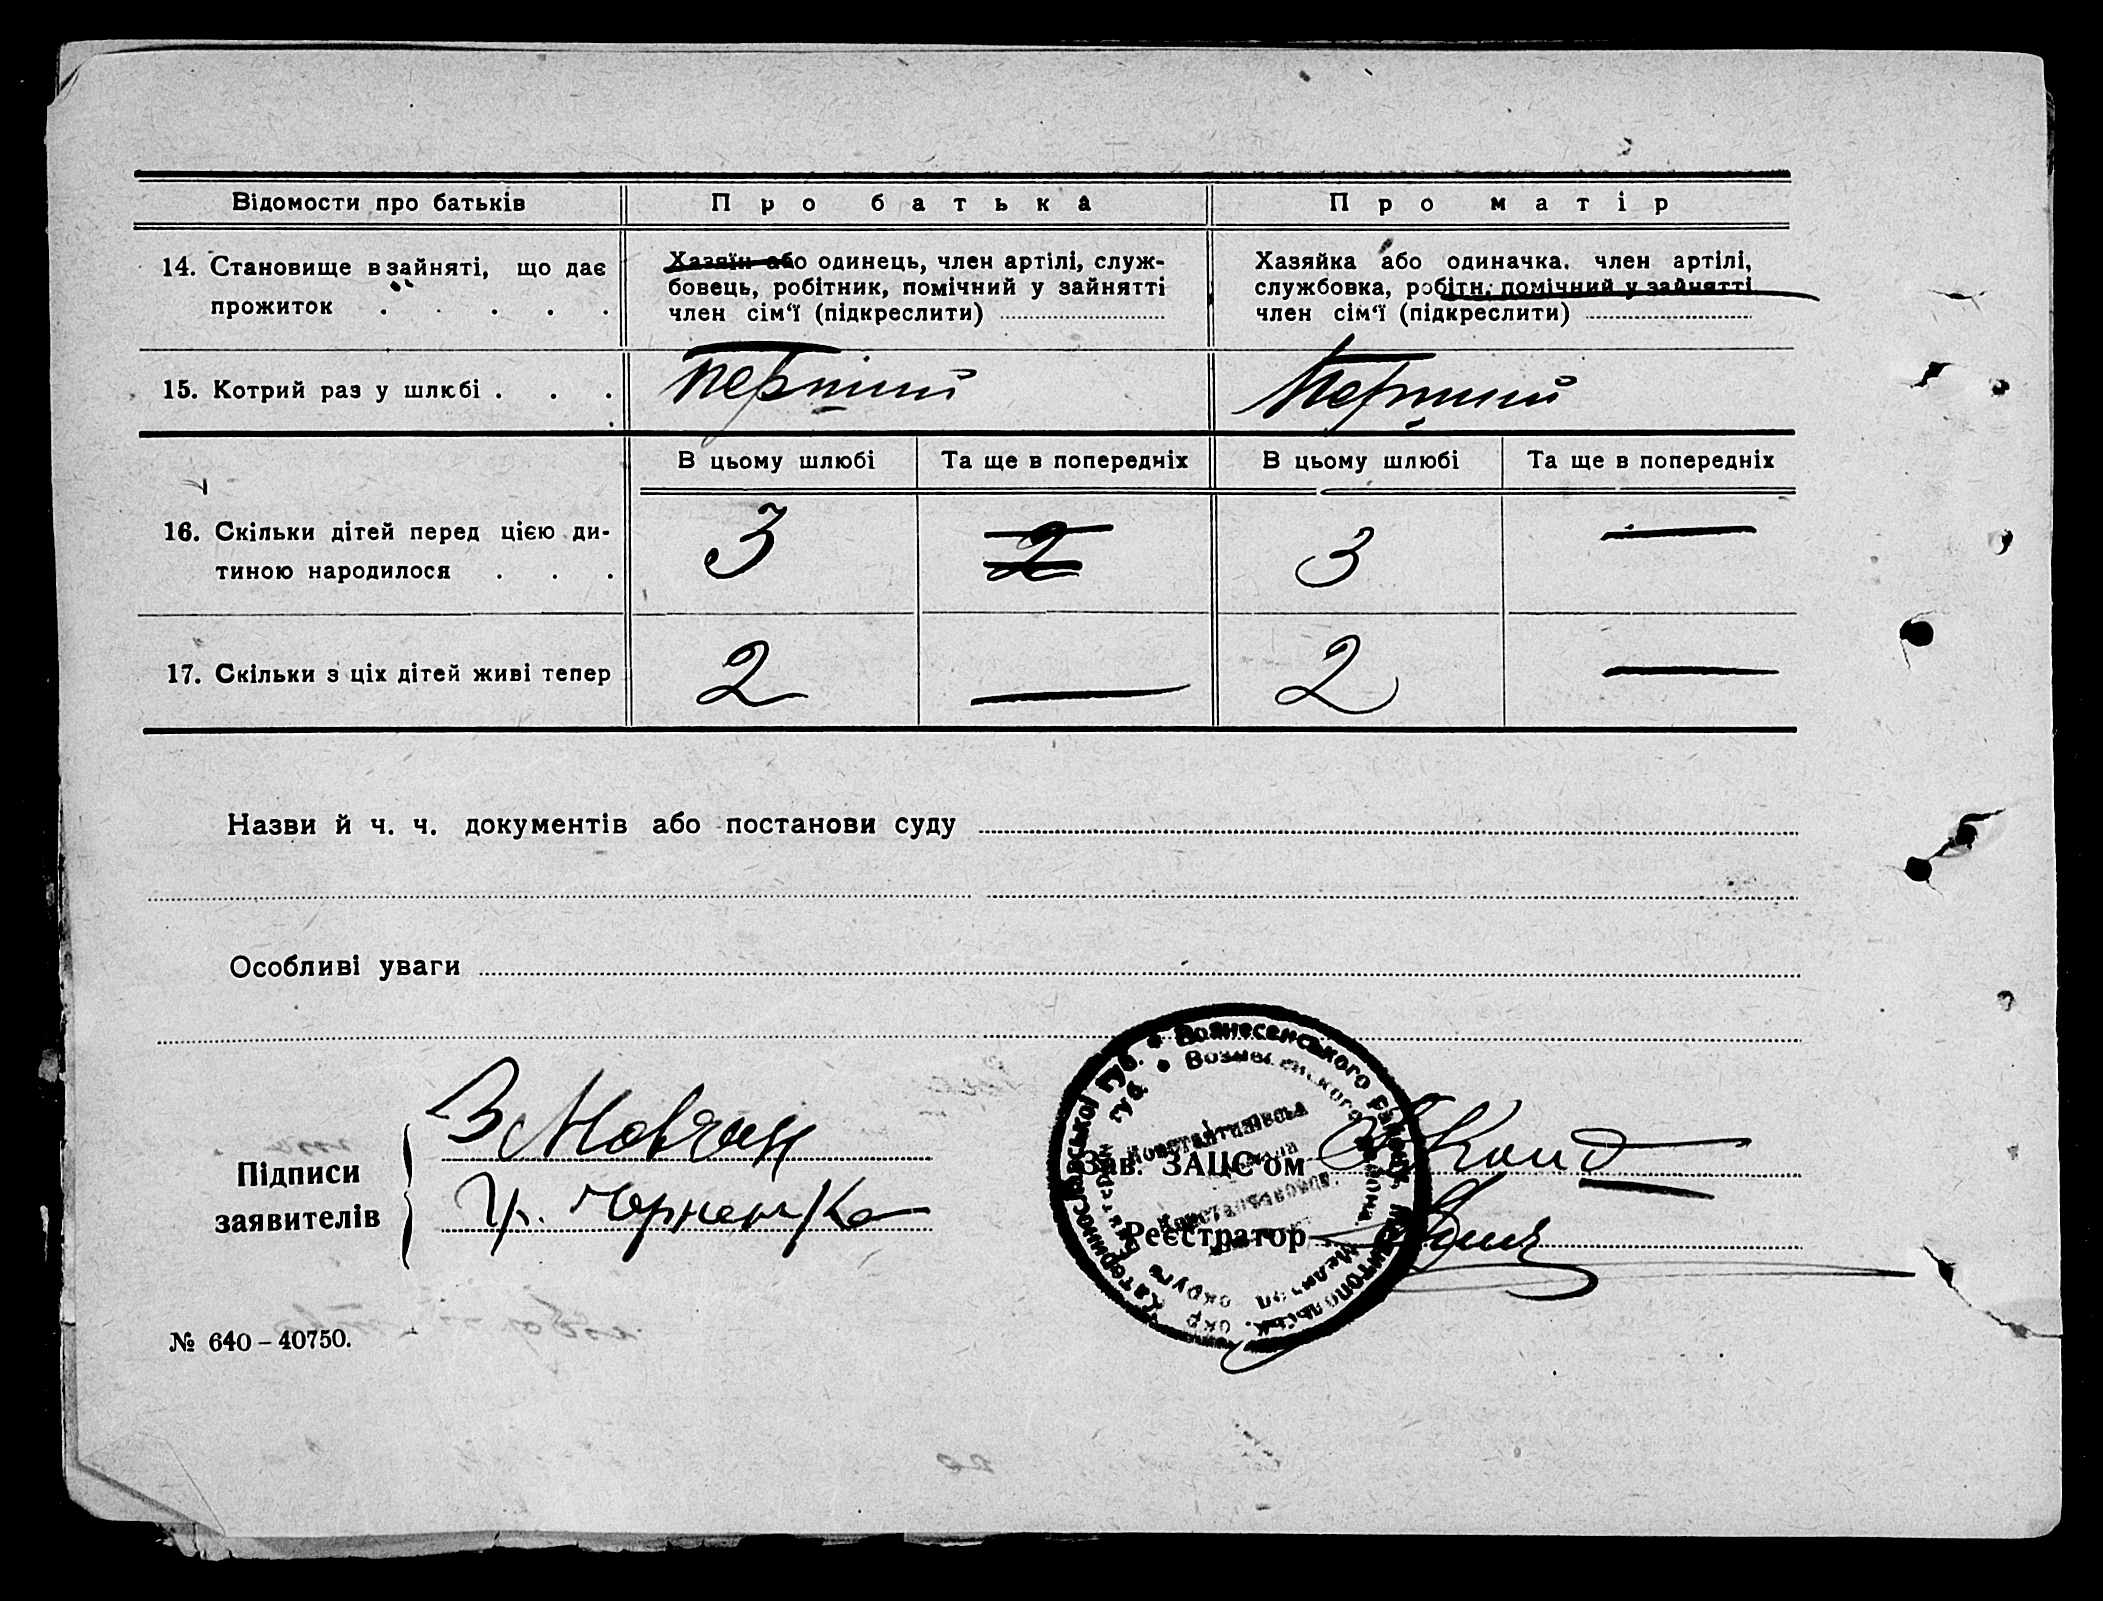 Відомости про батьків
Про батька
Про матір
14. Становище в зайняті, що дає
прожиток . . . . .
Хазяїн або одинець, член артілі, служ-
бовець, робітник, помічний у зайнятті
член сім'ї (підкреслити)
Хазяйка або одиначка, член артілі,
службовка, робітн. помічний у зайнятті
член сім'ї (підкреслити)
15. Котрий раз у шлюбі . . .
перший
Перший
В цьому шлюбі
Та ще в попередніх
В цьому шлюбі
Та ще в попередніх
16. Скільки дітей перед цією ди-
тиною народилося . . .
3
2
3
—
17. Скільки з ціх дітей живі тепер
2
—
2
—
Назви й ч. ч. документів або постанови суду
Особливі уваги
Підписи
заявителів
З Мовчан
Гр. Чорненько
Зав. ЗАЦС'ом
Реєстратор
Катеринославської губ. * Вознесенського району, Мелітопольськ. окр.
№ 640 – 40750.